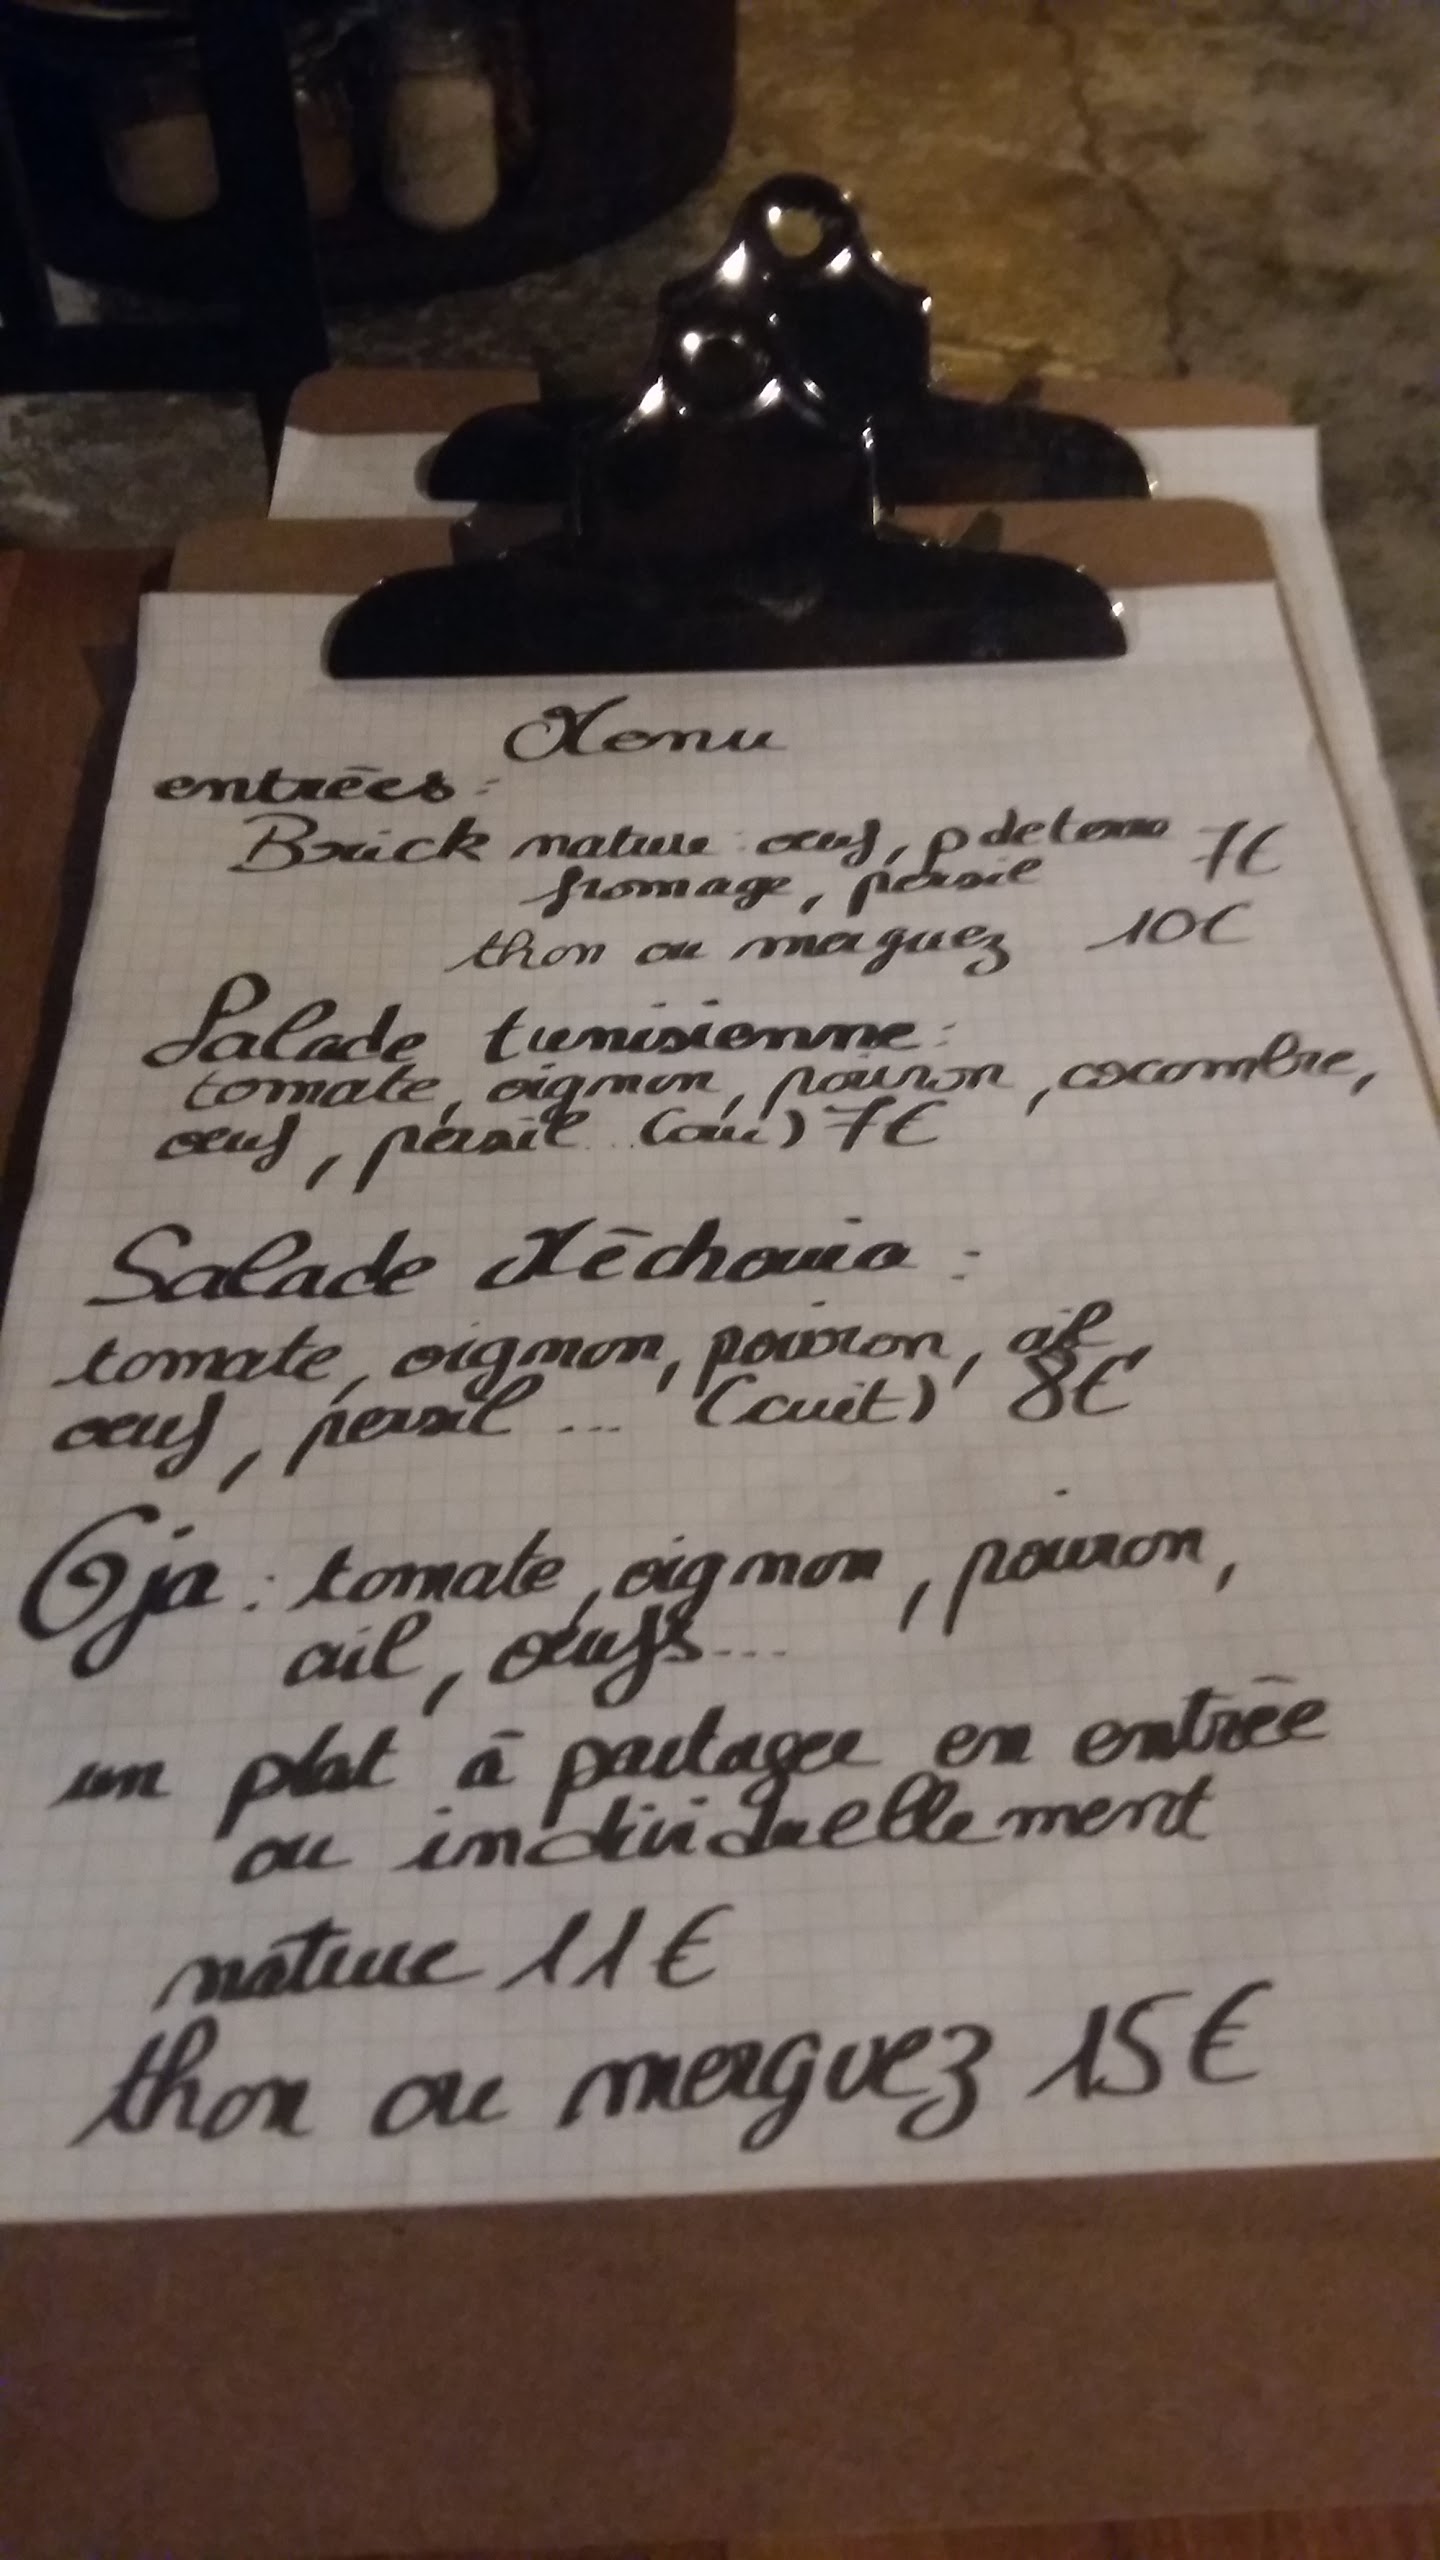 Menu
entrées :
Brick nature : œuf, p de terre 7€
fromage, persil
thon ou merguez 10€
Salade tunisienne :
tomate, oignon, poivron, cocombre,
œuf, persil... (cru) 7€
Salade Méchouia :
tomate, oignon, poivron, ail
œuf, persil... (cuit) 8€
Oja : tomate, oignon, poivron,
ail, œufs...
un plat à partager en entrée
ou individuellement
nature 11€
thon ou merguez 15€